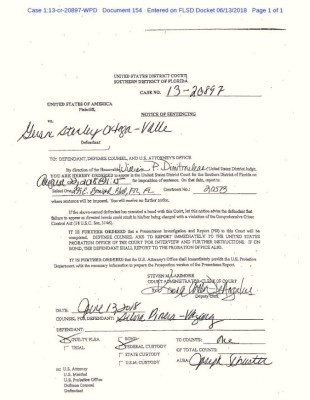 Case 1:13-cr-20897-WPD Document 154 Entered on FLSD Docket 06/13/2018 Page 1 of 1
UNITED STATES DISTRICT COURT
SOUTHERN DISTRICT OF FLORIDA
CASE NO. 13-20897
UNITED STATES OF AMERICA
Plaintiff,
NOTICE OF SENTENCING
TO:
Stanley Ortega-Valle
Defendant
TO: DEFENDANT, DEFENSE COUNSEL, AND U.S. ATTORNEY'S OFFICE
By direction of the Honorable William P. Dimitrouleas United States District Judge,
YOU ARE HEREBY ORDERED to appear in the United States District Court for the Southern District of Florida
August 22, 2018 for imposition of sentence. On that date, report to
299 E. Broward Blvd, Ft. FL Courtroom No.: 205B
where sentence will be imposed. You will receive no further notice.
If the above-named defendant has executed a bond with this Court, let this notice advise the defendant that
failure to appear as directed herein could result in his/her being charged with a violation of the Comprehensive Crime
Control Act (18 U.S.C. Sec. 3146).
IT IS FURTHER ORDERED that a Presentence Investigation and Report (PSI) to this Court will be
completed. DEFENSE COUNSEL ARE TO REPORT IMMEDIATELY TO THE UNITED STATES
PROBATION OFFICE OF THE COURT FOR INTERVIEW AND FURTHER INSTRUCTIONS. IF ON
BOND, THE DEFENDANT SHALL REPORT TO THE PROBATION OFFICE ALSO.
IT IS FURTHER ORDERED that the U.S. Attorney's Office shall immediately provide the U.S. Probation
Department, the necessary information to prepare the Prosecution version of the Presentence Report.
STEVEN M. LARIMORE
COURT ADMINISTRATOR-CLERK OF COURT
Deputy Clerk
DATE: June 13, 2018
COUNSEL FOR DEFENDANT: Silvia
DEFENDANT:
GUILTY PLEA
TRIAL
BOND
FEDERAL CUSTODY
STATE CUSTODY
U.S.M. CUSTODY
TO COUNTS: One
OF TOTAL COUNTS:
AUSA: Joseph Schuster
cc: U.S. Attorney
U.S. Marshal
U.S. Probation Office
Defense Counsel
Defendant